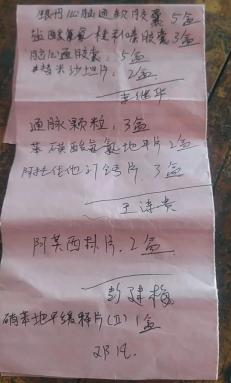 银丹心脑通软胶囊 5盒
盐酸氟桂利嗪胶囊 3盒
脑心通胶囊 5盒
替米沙坦片 2盒
李继华
通脉颗粒 3盒
苯磺酸氨氯地平片 2盒
阿托伐他汀钙片 3盒
王
阿莫西林片 2盒
彭建梅
硝苯地平缓释片(II) 1盒
邓凡